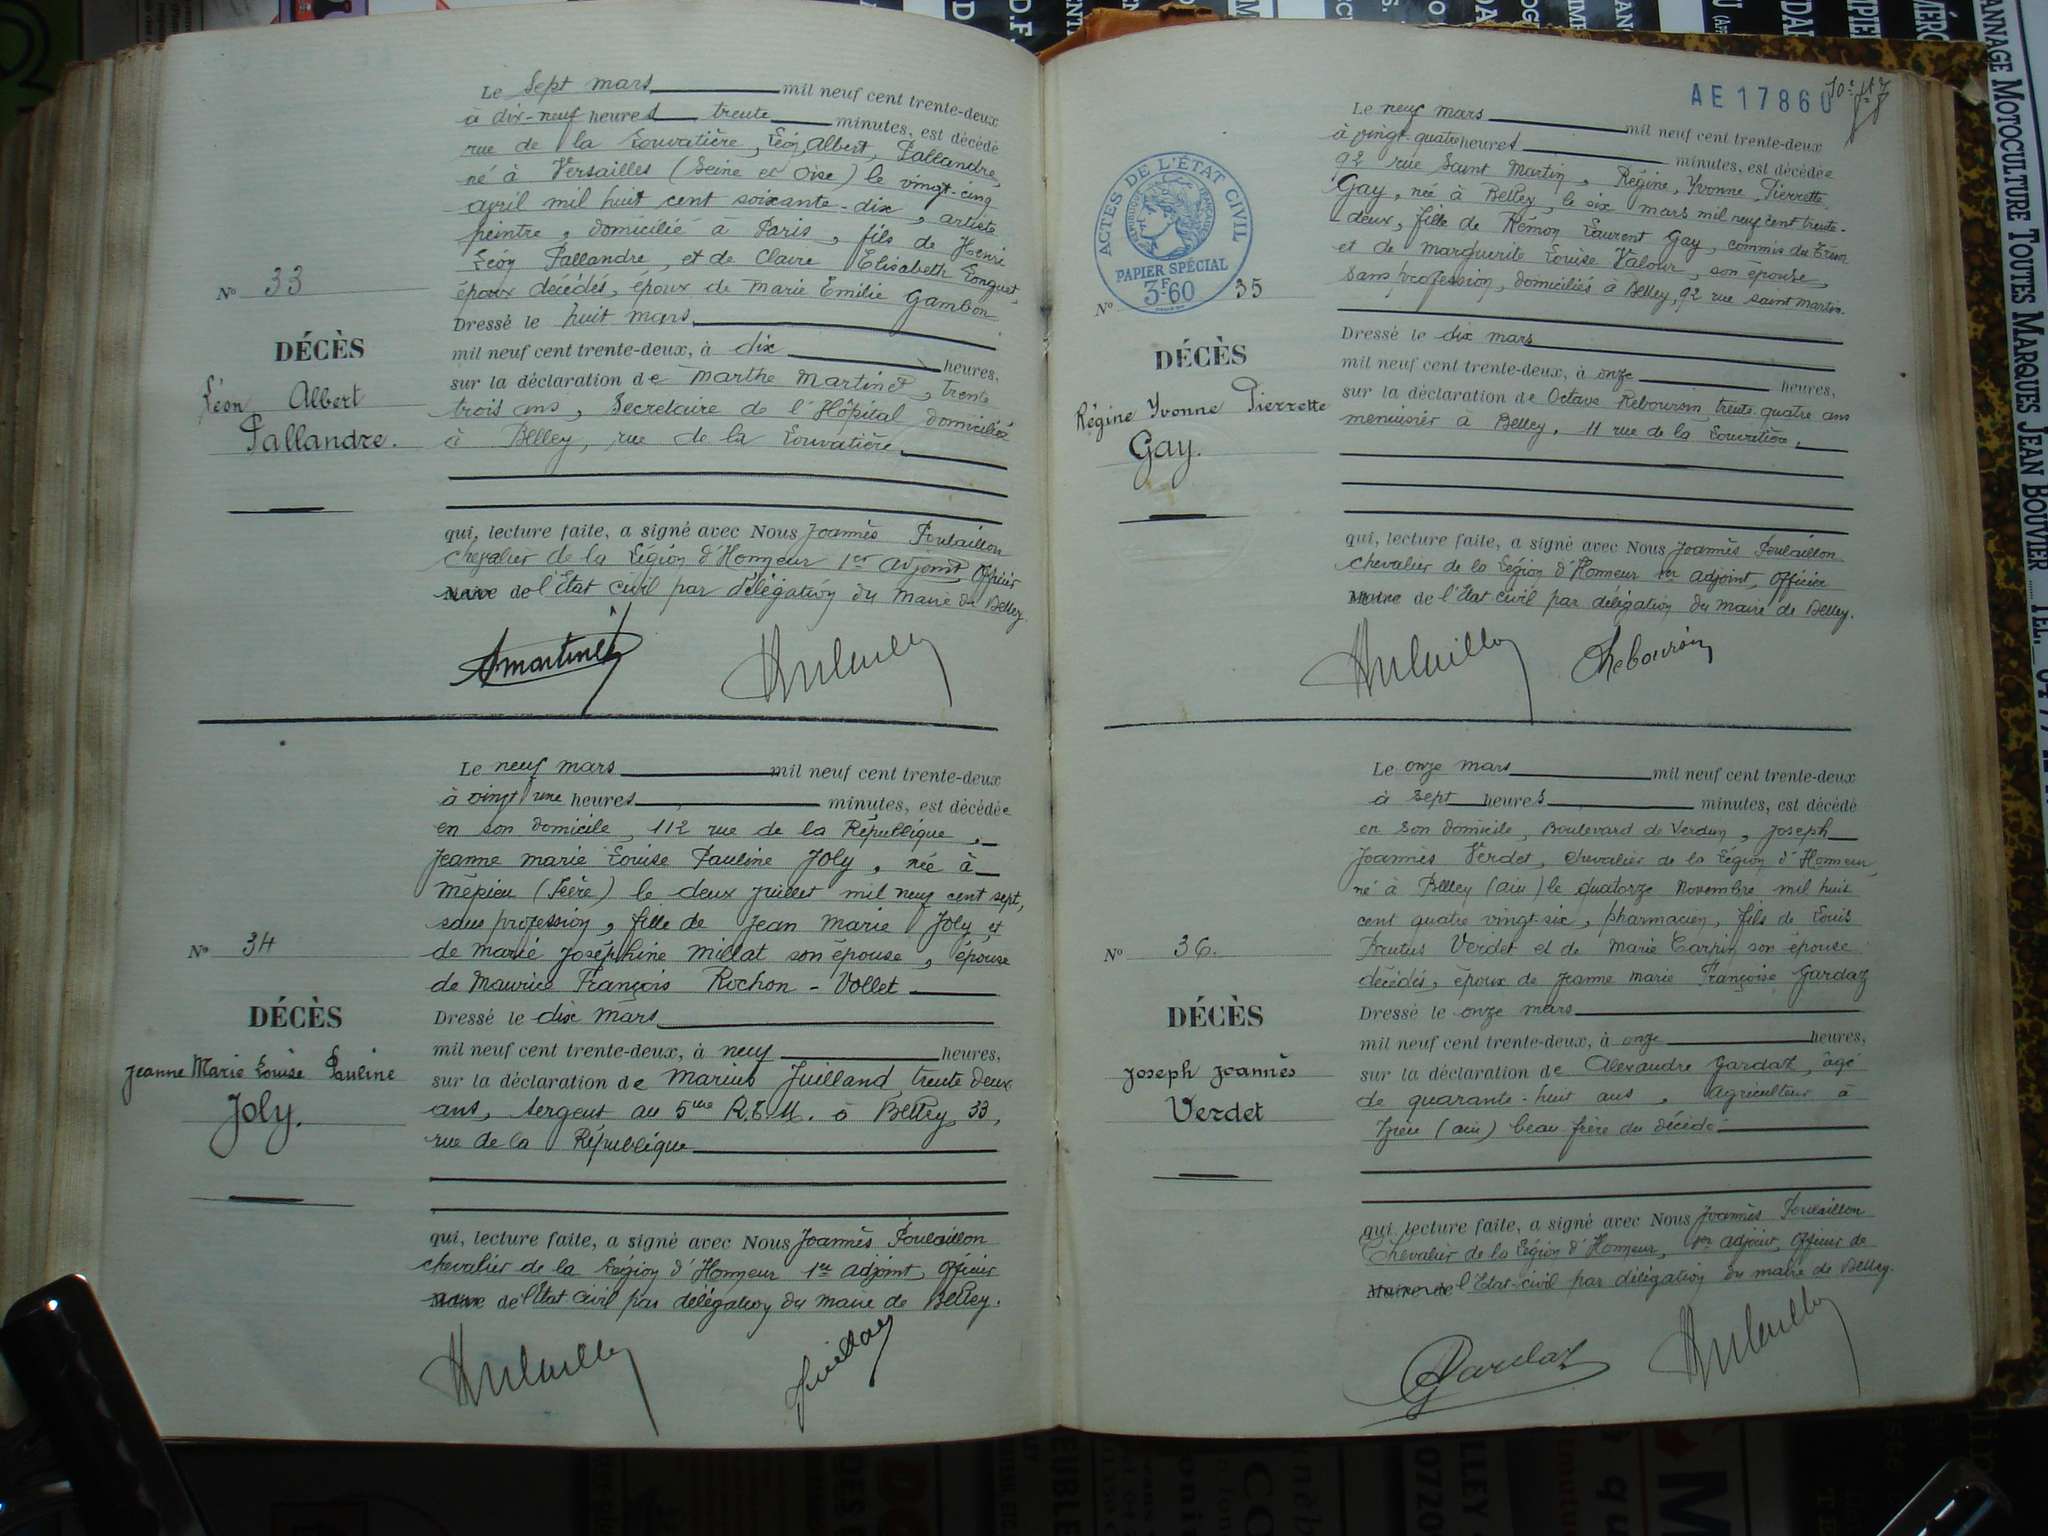 Le sept mars mil neuf cent trente-deux
à dix-neuf heures trente minutes, est décédé
rue de la Louvatière, Léon, Albert, Pallandre,
né à Versailles (Seine et Oise) le vingt-cinq
avril mil huit cent soixante-dix, artiste
peintre, domicilié à Paris, fils de Henri
Léon Pallandre, et de Claire Elisabeth Longuet,
époux décédés, époux de Marie Emilie Gambon
Nº 33
DÉCÈS
Léon Albert
Pallandre.
Dressé le huit mars
mil neuf cent trente-deux, à dix heures,
sur la déclaration de Marthe Martinet, trente
trois ans, Secrétaire de l'Hôpital domiciliée
à Belley, rue de la Louvatière
qui, lecture faite, a signé avec Nous Joannès Poulaillon
chevalier de la Légion d'Honneur 1er adjoint, officier
Maire de l'Etat civil par délégation du Maire de Belley.
Martinet
Le neuf mars mil neuf cent trente-deux
à vingt une heures minutes, est décédée
en son domicile, 112 rue de la République,
Jeanne Marie Louise Pauline Joly, née à
Mépieu (Isère) le deux juillet mil neuf cent sept,
sans profession, fille de Jean Marie Joly et
de Marie Joséphine Millat son épouse, épouse
de Maurice François Rochon-Vollet
Nº 34
DÉCÈS
Jeanne Marie Louise Pauline
Joly.
Dressé le dix mars
mil neuf cent trente-deux, à neuf heures,
sur la déclaration de Marius Juilland, trente deux
ans, sergent au 5me R.T.M. à Belley, 33,
rue de la République
qui, lecture faite, a signé avec Nous Joannès Poulaillon
chevalier de la Légion d'Honneur 1er adjoint, officier
Maire de l'Etat Civil par délégation du maire de Belley.
AE 17860
Le neuf mars mil neuf cent trente-deux
à vingt-quatre heures minutes, est décédée
92 rue Saint Martin, Régine, Yvonne, Pierrette
Gay, née à Belley, le six mars mil neuf cent trente-
deux, fille de Rémon Laurent Gay, commis du Trésor
et de Marguerite Louise Valour, son épouse,
sans profession, domiciliés à Belley, 92 rue Saint Martin.
ACTES DE L'ÉTAT CIVIL
RÉPUBLIQUE FRANÇAISE
PAPIER SPÉCIAL
3F60
Nº 35
DÉCÈS
Régine Yvonne Pierrette
Gay.
Dressé le dix mars
mil neuf cent trente-deux, à onze heures,
sur la déclaration de Octave Reboursin, trente quatre ans
menuisier à Belley, 11 rue de la Louvatière,
qui, lecture faite, a signé avec Nous Joannès Poulaillon
chevalier de la Légion d'Honneur 1er adjoint, officier
Maire de l'Etat civil par délégation du maire de Belley.
Reboursin
Le onze mars mil neuf cent trente-deux
à sept heures minutes, est décédé
en son domicile, Boulevard de Verdun, Joseph
Joannès Verdet, chevalier de la Légion d'Honneur,
né à Belley (ain) le quatorze Novembre mil huit
cent quatre vingt-six, pharmacien, fils de Louis
Brutus Verdet et de Marie Carpin son épouse
décédés, époux de Jeanne Marie Françoise Gardaz
Nº 36.
DÉCÈS
Joseph Joannès
Verdet
Dressé le onze mars
mil neuf cent trente-deux, à onze heures,
sur la déclaration de Alexandre Gardaz, âgé
de quarante-huit ans, Agriculteur à
Izieu (ain) beau-frère du décédé
qui, lecture faite, a signé avec Nous Joannès Poulaillon
Chevalier de la Légion d'Honneur, 1er adjoint, officier de
Maire de l'Etat-civil par délégation du maire de Belley.
Gardaz
MOTOCULTURE TOUTES MARQUES JEAN BOUVIER